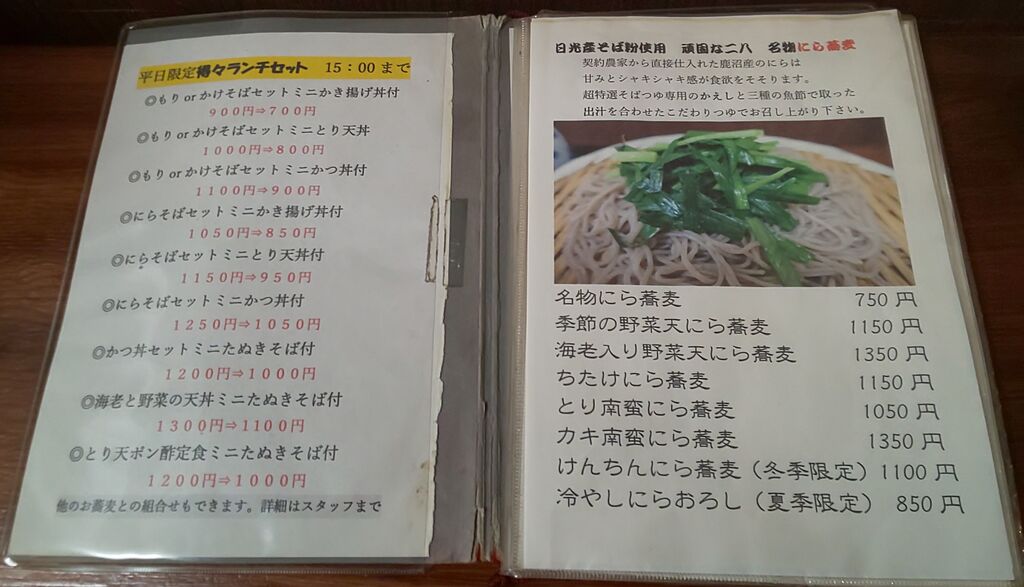 平日限定得々ランチセット　15：00まで
◎もりorかけそばセットミニかき揚げ丼付
900円⇒700円
◎もりorかけそばセットミニとり天丼
1000円⇒800円
◎もりorかけそばセットミニかつ丼付
1100円⇒900円
◎にらそばセットミニかき揚げ丼付
1050円⇒850円
◎にらそばセットミニとり天丼付
1150円⇒950円
◎にらそばセットミニかつ丼付
1250円⇒1050円
◎かつ丼セットミニたぬきそば付
1200円⇒1000円
◎海老と野菜の天丼ミニたぬきそば付
1300円⇒1100円
◎とり天ポン酢定食ミニたぬきそば付
1200円⇒1000円
他のお蕎麦との組合せもできます。詳細はスタッフまで
日光産そば粉使用　頑固な二八　名物にら蕎麦
契約農家から直接仕入れた鹿沼産のにらは
甘みとシャキシャキ感が食欲をそそります。
超特選そばつゆ専用のかえしと三種の魚節で取った
出汁を合わせたこだわりつゆでお召し上がり下さい。
名物にら蕎麦　750円
季節の野菜天にら蕎麦　1150円
海老入り野菜天にら蕎麦　1350円
ちたけにら蕎麦　1150円
とり南蛮にら蕎麦　1050円
カキ南蛮にら蕎麦　1350円
けんちんにら蕎麦（冬季限定）1100円
冷やしにらおろし（夏季限定）　850円